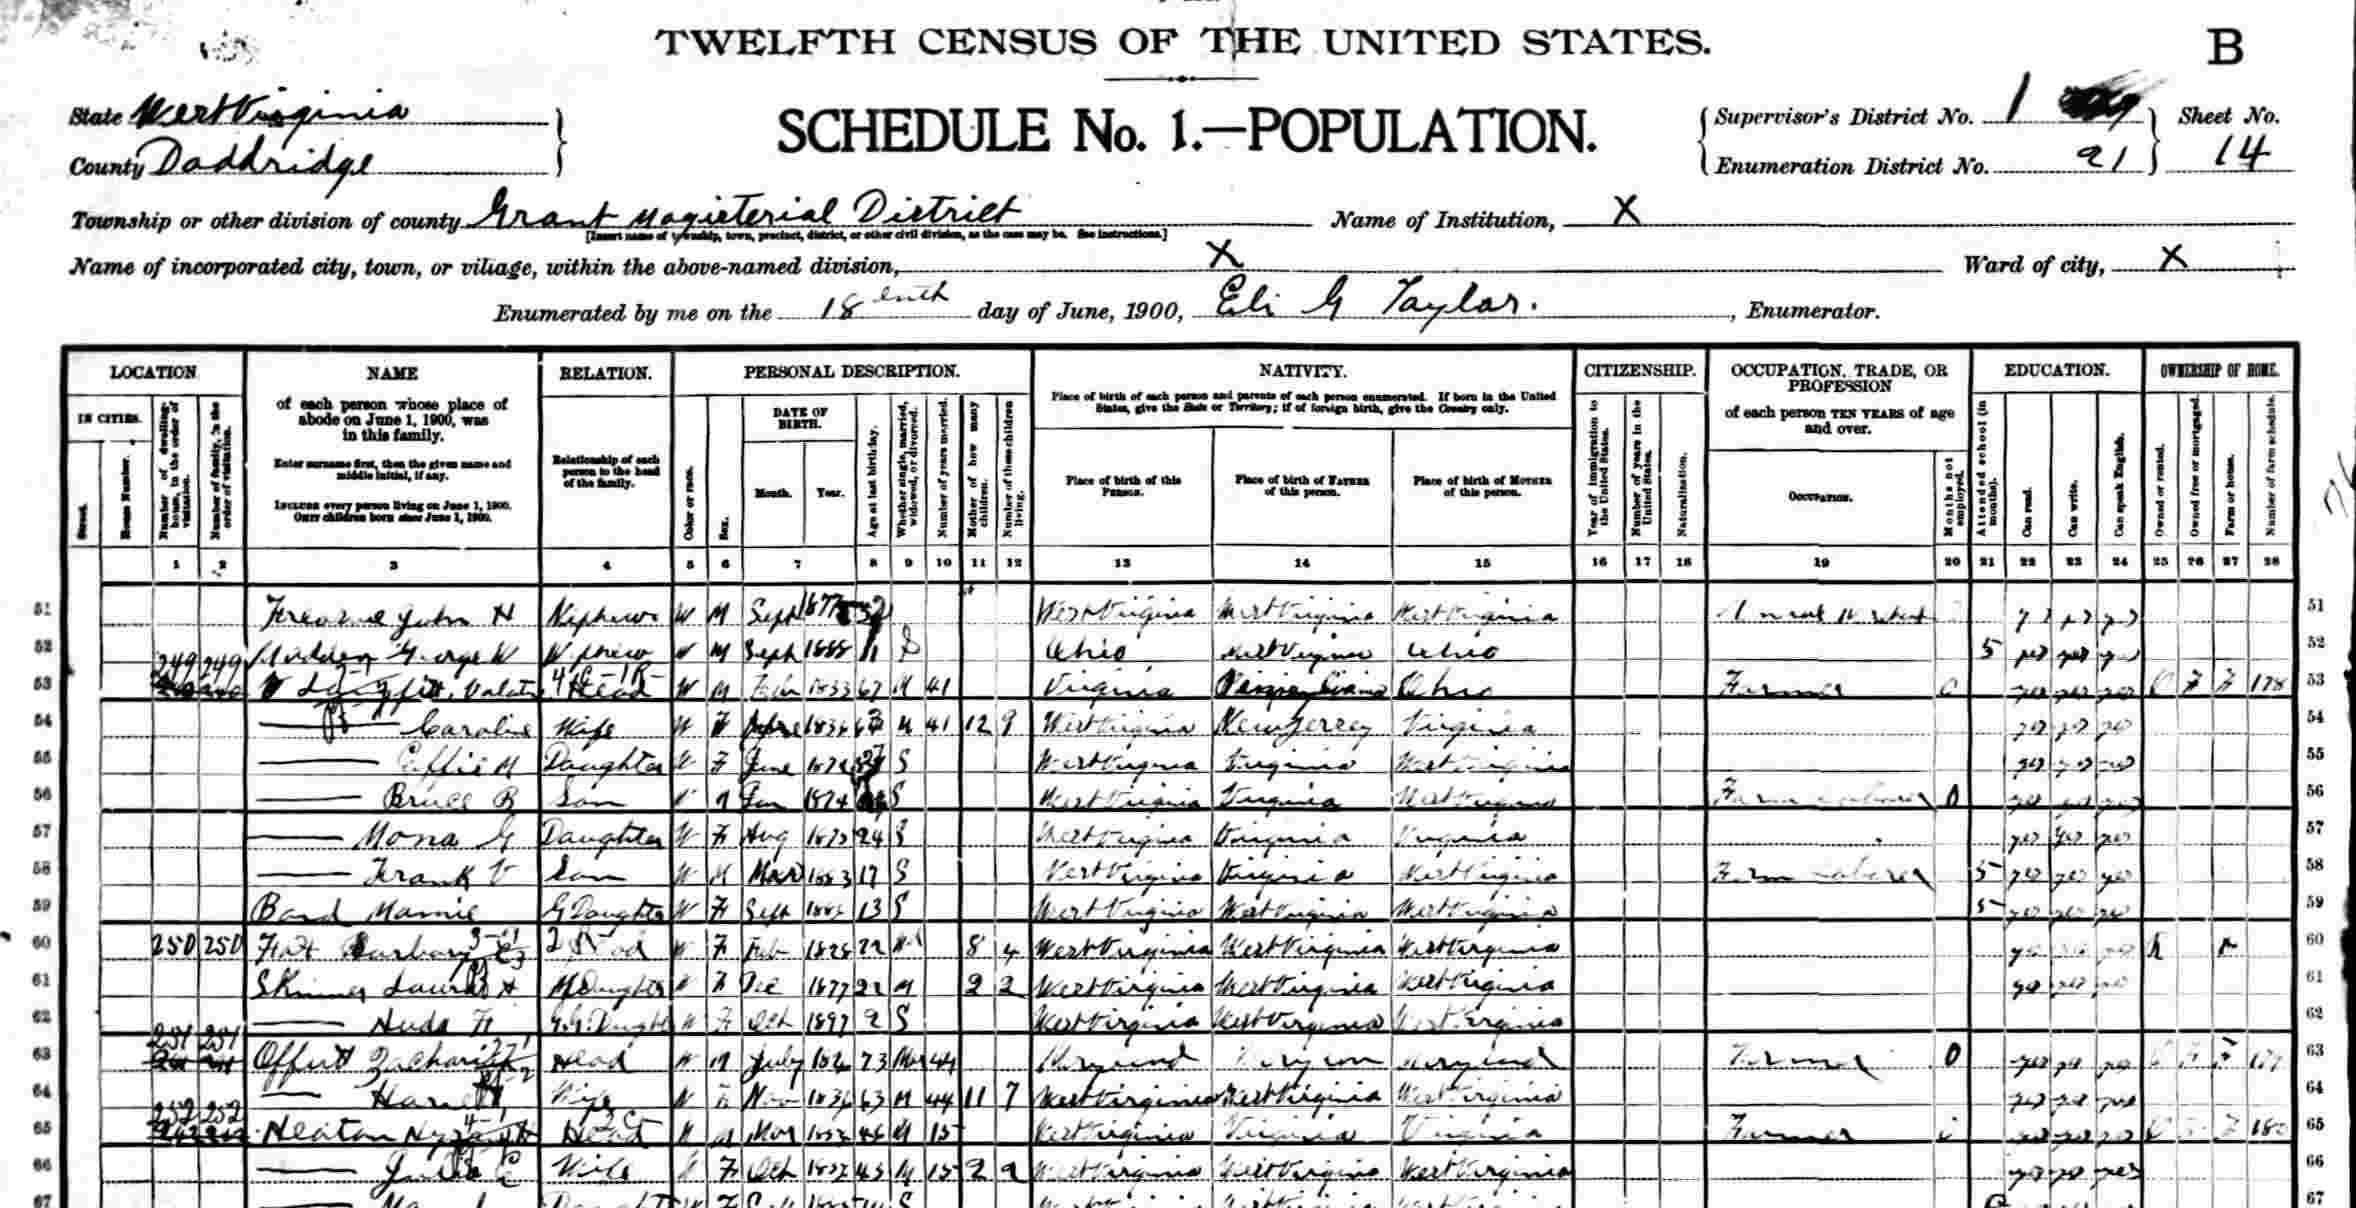 TWELFTH CENSUS OF THE UNITED STATES.
B
State West Virginia
County Doddridge
SCHEDULE No. 1.—POPULATION.
Supervisor's District No. 1
Enumeration District No. 21
Sheet No.
14
Township or other division of county Grant Magisterial District
[Insert name of township, town, precinct, district, or other civil division, as the case may be. See instructions.]
Name of Institution, X
Name of incorporated city, town, or village, within the above-named division, X
Ward of city, X
Enumerated by me on the 18 enth day of June, 1900, Eli G Taylor. , Enumerator.
LOCATION NAME RELATION. PERSONAL DESCRIPTION. NATIVITY. CITIZENSHIP. OCCUPATION, TRADE, OR PROFESSION EDUCATION. OWNERSHIP OF HOME.
IN CITIES.
Street.
House Number.
Number of dwelling-house, in the order of visitation.
Number of family, in the order of visitation.
of each person whose place of abode on June 1, 1900, was in this family.
Enter surname first, then the given name and middle initial, if any.
INCLUDE every person living on June 1, 1900.
OMIT children born since June 1, 1900.
Relationship of each person to the head of the family.
Color or race.
Sex.
DATE OF BIRTH.
Month.
Year.
Age at last birthday.
Whether single, married, widowed, or divorced.
Number of years married.
Mother of how many children.
Number of these children living.
Place of birth of each person and parents of each person enumerated. If born in the United States, give the State or Territory; if of foreign birth, give the Country only.
Place of birth of this PERSON.
Place of birth of FATHER of this person.
Place of birth of MOTHER of this person.
Year of immigration to the United States.
Number of years in the United States.
Naturalization.
of each person TEN YEARS of age and over.
OCCUPATION.
Months not employed.
Attended school (in months).
Can read.
Can write.
Can speak English.
Owned or rented.
Owned free or mortgaged.
Farm or house.
Number of farm schedule.
1 2 3 4 5 6 7 8 9 10 11 12 13 14 15 16 17 18 19 20 21 22 23 24 25 26 27 28
51 John H Nephew W M Sept West Virginia West Virginia West Virginia yes yes yes 51
52 George W Nephew W M Sept 1888 11 S Ohio West Virginia Ohio 5 yes yes yes 52
249 249
53 Head W M Feb 1833 67 M 41 Virginia Pennsylvania Ohio Farmer 0 yes yes yes O F F 178 53
54 Caroline Wife W F 1836 63 M 41 12 9 West Virginia New Jersey Virginia yes yes yes 54
55 Effie M Daughter W F June S West Virginia Virginia West Virginia yes yes yes 55
56 Bruce B Son W M Jan 1874 S West Virginia Virginia West Virginia Farm Laborer 0 yes yes yes 56
57 Mona G Daughter W F Aug 1875 24 S West Virginia Virginia Virginia yes yes yes 57
58 Frank V Son W M Mar 1883 17 S West Virginia Virginia West Virginia Farm Laborer 5 yes yes yes 58
59 Bond Mamie G Daughter W F Sept 1886 13 S West Virginia West Virginia West Virginia 5 yes yes yes 59
60 250 250 Head W F Feb 1828 72 Wd 8 4 West Virginia West Virginia West Virginia yes yes yes R 60
61 Skinner Laura A G Daughter W F Dec 1877 22 M 2 2 West Virginia West Virginia West Virginia yes yes yes 61
62 F G.G. Daughter W F Oct 1897 2 S West Virginia West Virginia West Virginia 62
251 251
63 Offutt Zachariah Head W M July 73 M 44 Maryland Maryland Maryland Farmer 0 yes yes yes O F F 179 63
64 Wife W F Nov 1836 63 M 44 11 7 West Virginia West Virginia West Virginia yes yes yes 64
252 252
65 Heaton Head W M Mar 46 M 15 West Virginia Virginia Virginia Farmer yes yes yes O F F 180 65
66 Julia E Wife W F Oct 1857 43 M 15 2 2 West Virginia West Virginia West Virginia yes yes yes 66
67 Daughter W F S 67